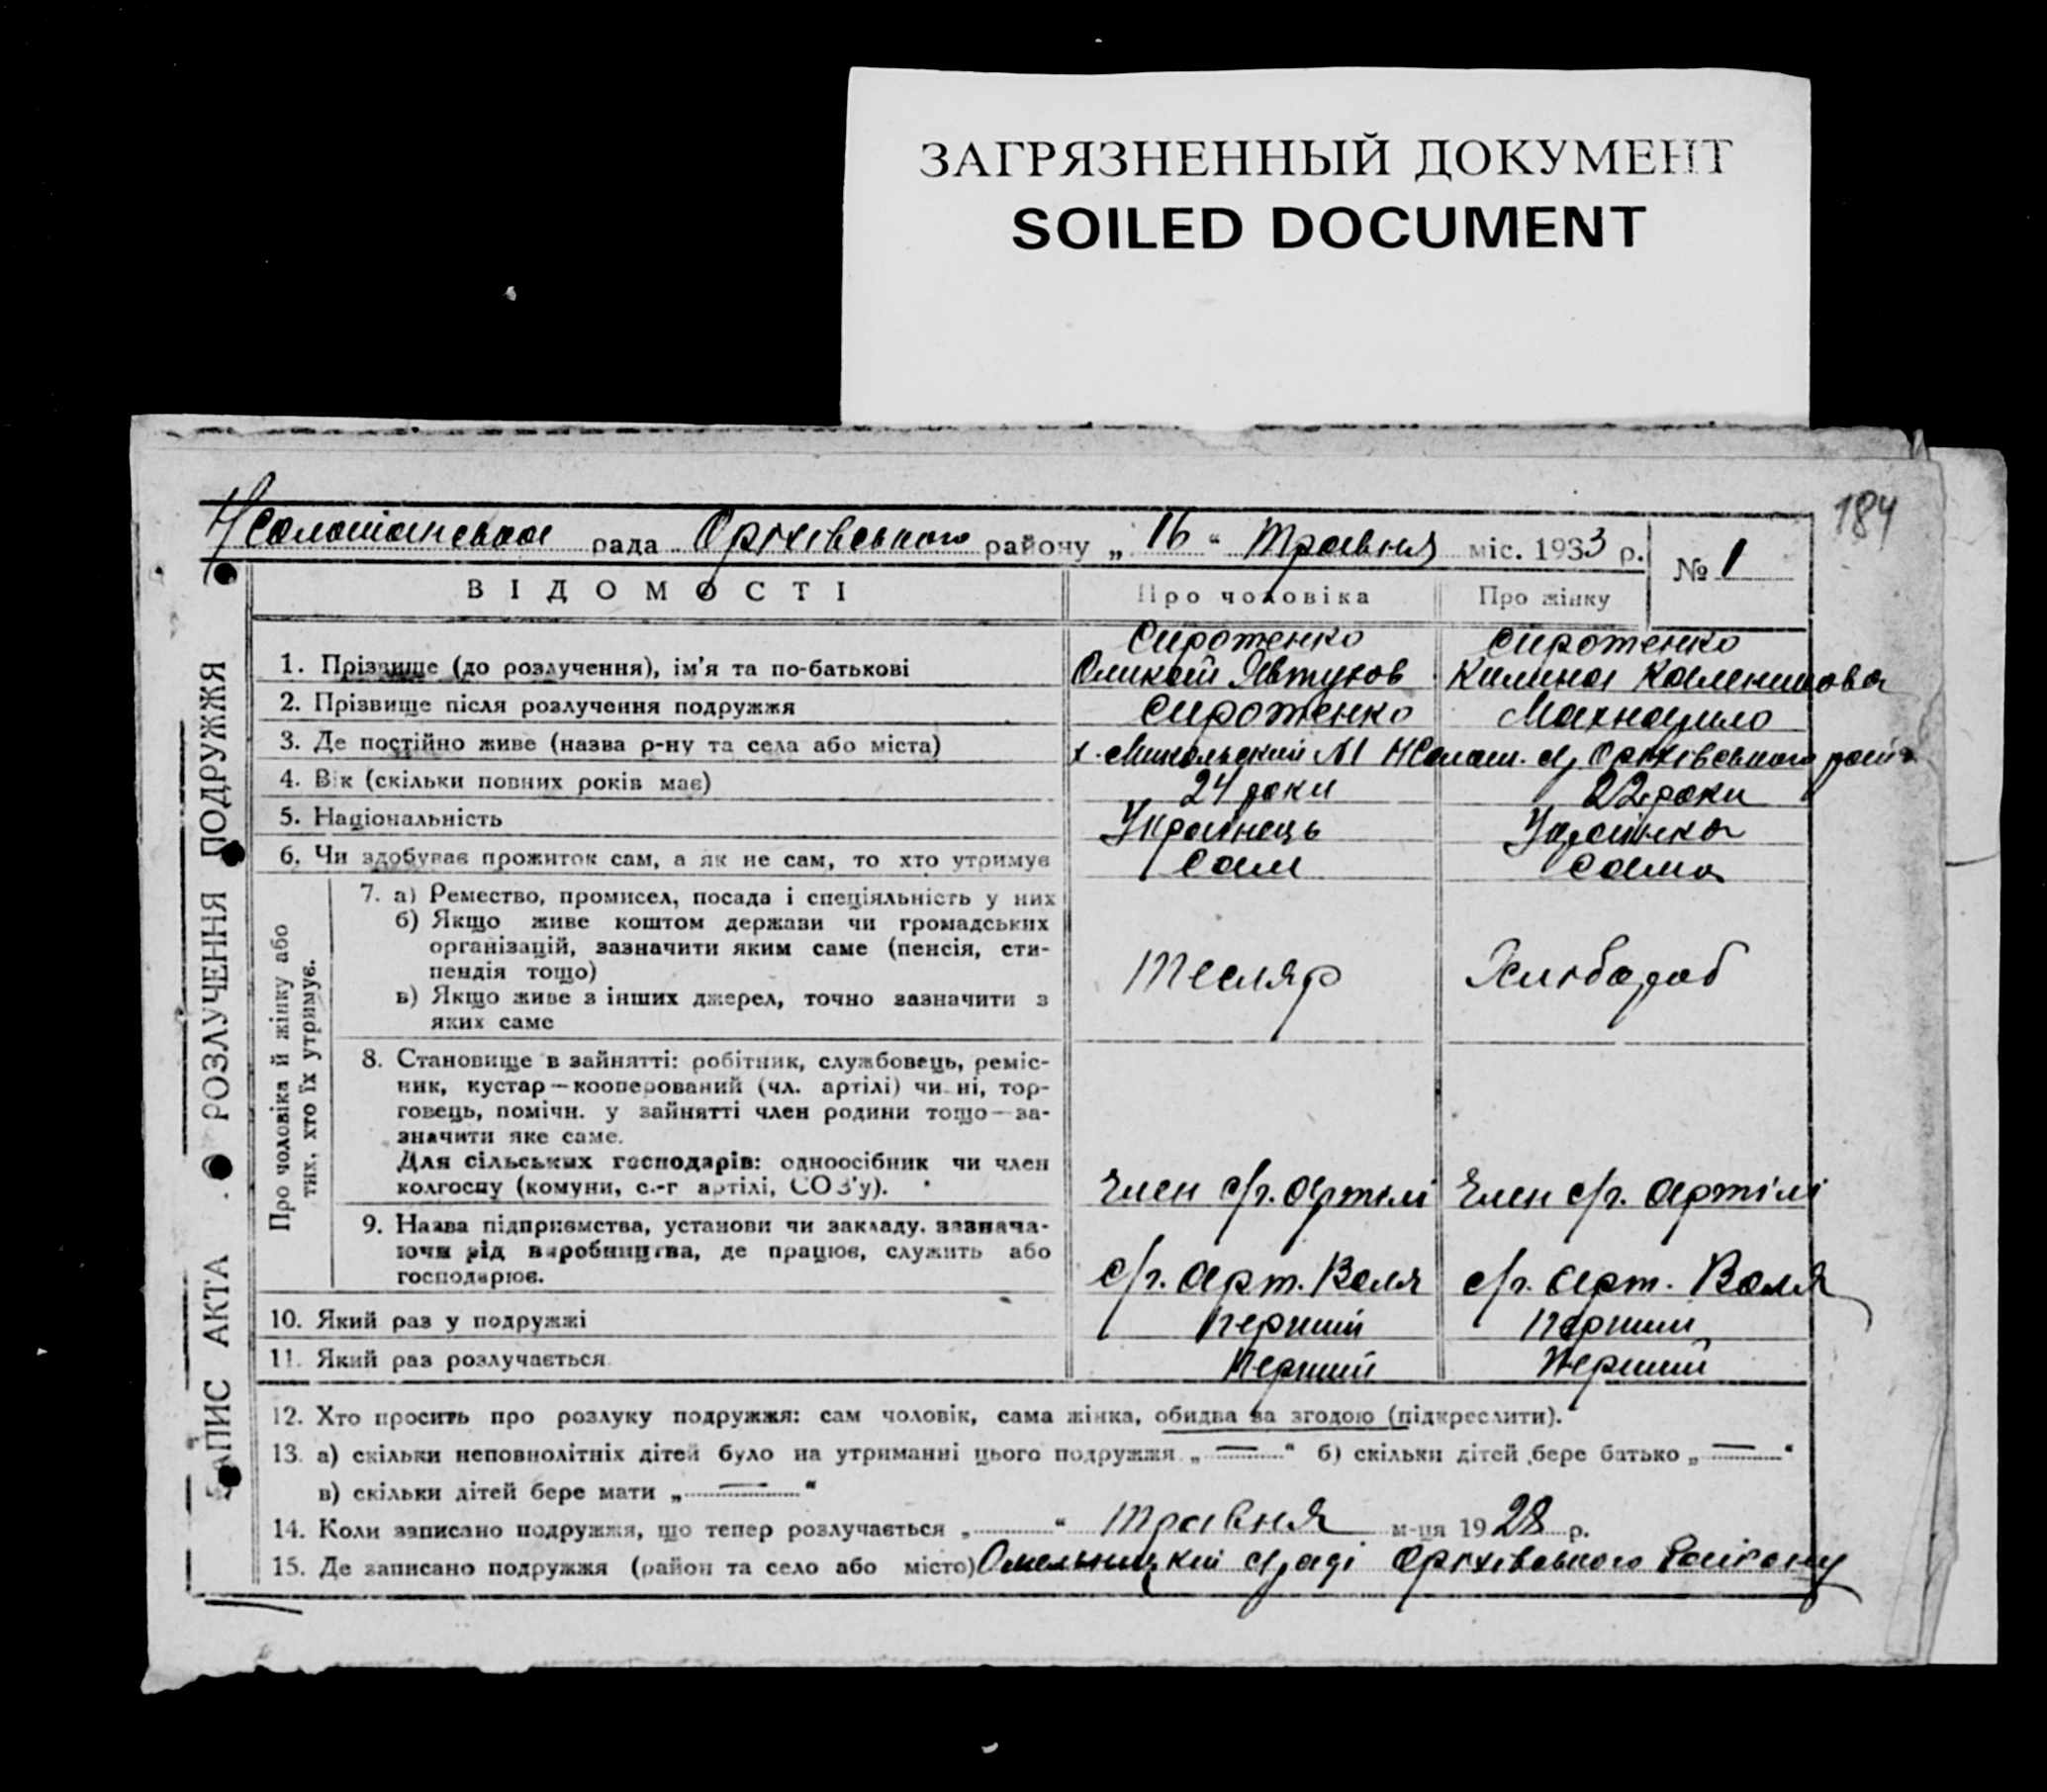 ЗАГРЯЗНЕННЫЙ ДОКУМЕНТ
SOILED DOCUMENT
184
рада Оріхівського району „ 16 “ Травня міс. 1933 р. № 1
ЗАПИС АКТА РОЗЛУЧЕННЯ ПОДРУЖЖЯ
ВІДОМОСТІ Про чоловіка Про жінку
Сиротенко Сиротенко
1. Прізвище (до розлучення), ім'я та по-батькові Оликсій Явтухов Килина
2. Прізвище після розлучення подружжя Сиротенко Махнарило
3. Де постійно живе (назва р-ну та села або міста) х. Микольский №1 Оріхівського рай
4. Вік (скільки повних років має) 24 роки 22 роки
5. Національність Українець Українка
6. Чи здобуває прожиток сам, а як не сам, то хто утримує Сам Сама
Про чоловіка й жінку або
тих, хто їх утримує.
7. а) Ремество, промисел, посада і спеціяльність у них
б) Якщо живе коштом держави чи громадських
організацій, зазначити яким саме (пенсія, сти-
пендія тощо) Тесляр Хлібороб
в) Якщо живе з інших джерел, точно зазначити з
яких саме
8. Становище в зайнятті: робітник, службовець, реміс-
ник, кустар—кооперований (чл. артілі) чи ні, тор-
говець, помічн. у зайнятті член родини тощо—за-
значити яке саме.
Для сільських господарів: одноосібник чи член
колгоспу (комуни, с.-г артілі, СОЗ'у). Член с/г. артілі Член с/г. артілі
9. Назва підприємства, установи чи закладу, зазнача-
ючи рід виробництва, де працює, служить або
господарює. с/г. арт. Воля с/г. арт. Воля
10. Який раз у подружжі перший перший
11. Який раз розлучається Перший Перший
12. Хто просить про розлуку подружжя: сам чоловік, сама жінка, обидва за згодою (підкреслити).
13. а) скільки неповнолітніх дітей було на утриманні цього подружжя „ — “ б) скільки дітей бере батько „ — “
в) скільки дітей бере мати „ — “
14. Коли записано подружжя, що тепер розлучається „ “ Травня м-ця 1928 р.
15. Де записано подружжя (район та село або місто) Омельницкій с/раді Оріхівського Району